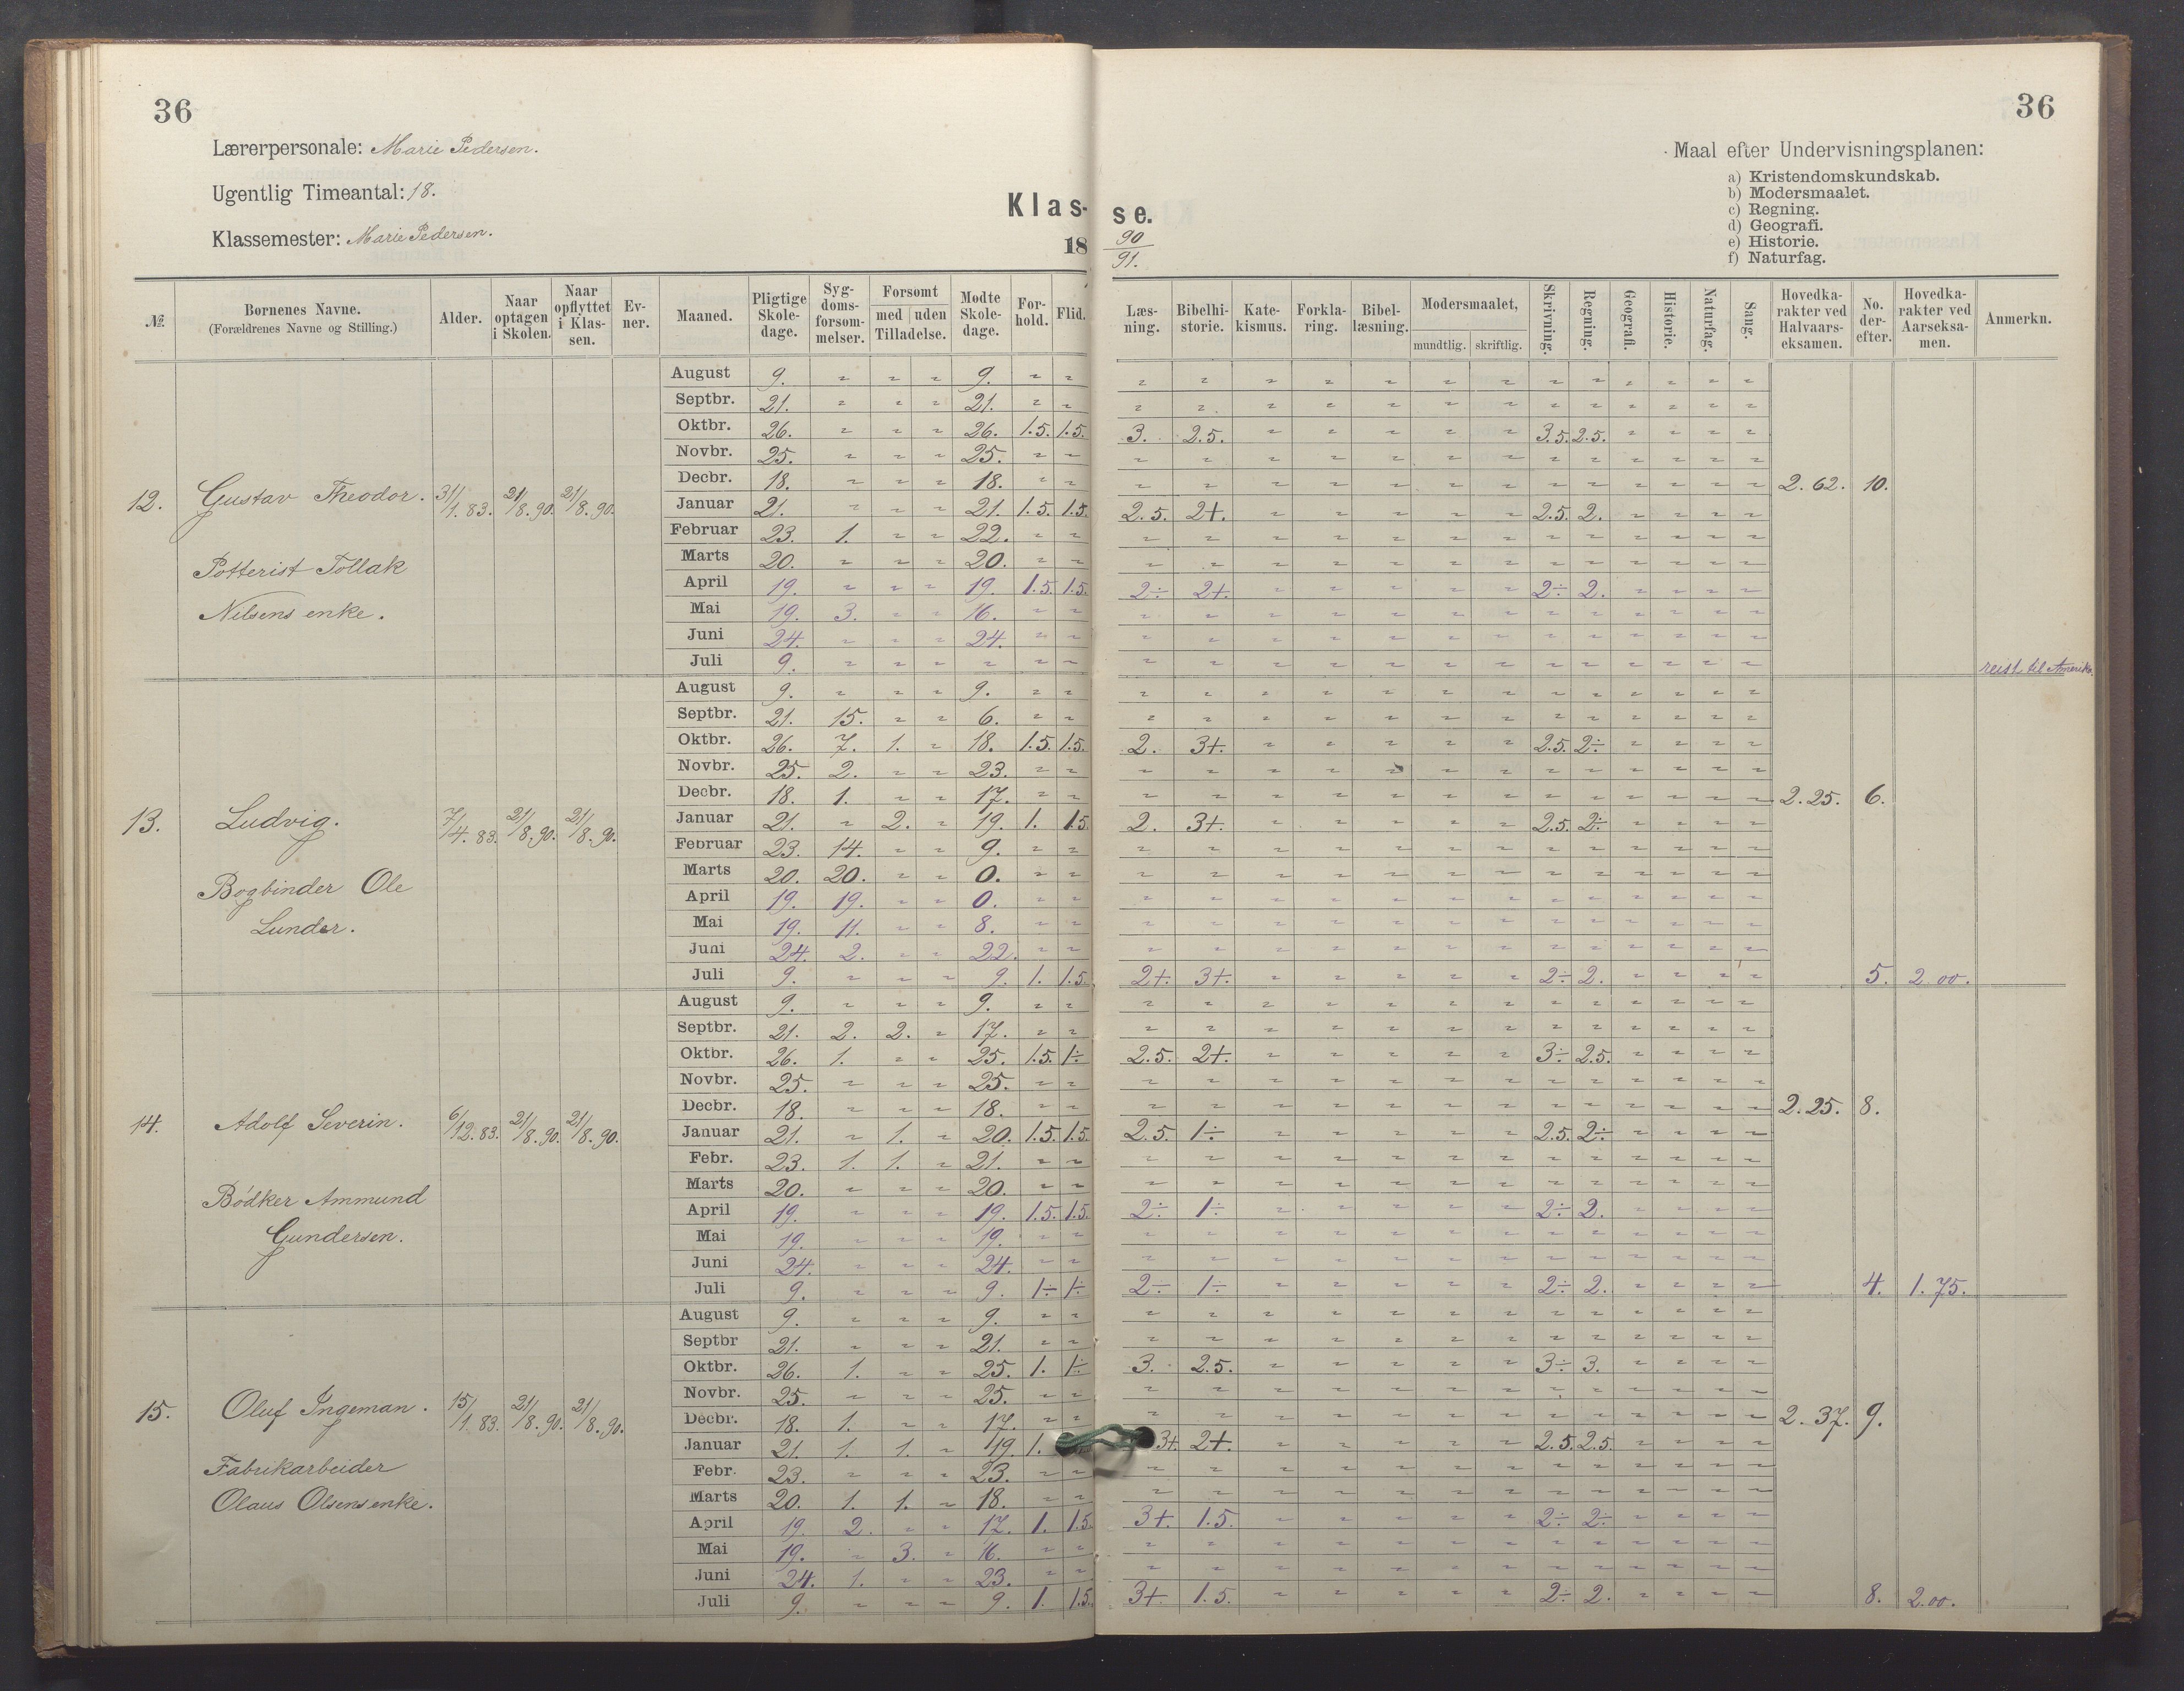 36
36
Lærerpersonale: Marie Pedersen.
Ugentlig Timeantal: 18.
Klassemester: Marie Pedersen.
Klas-
se.
18 90/91.
Maal efter Undervisningsplanen:
a) Kristendomskundskab.
b) Modersmaalet.
c) Regning.
d) Geografi.
e) Historie.
f) Naturfag.
№ | Børnenes Navne. (Forældrenes Navne og Stilling.) | Alder. | Naar optagen i Skolen. | Naar opflyttet i Klassen. | Evner. | Maaned. | Pligtige Skoledage. | Sygdomsforsømmelser. | Forsømt med uden Tilladelse. | Mødte Skoledage. | Forhold. | Flid. | Læsning. | Bibelhistorie. | Katekismus. | Forklaring. | Bibellæsning. | Modersmaalet, mundtlig. skriftlig. | Skrivning. | Regning. | Geografi. | Historie. | Naturfag. | Sang. | Hovedkarakter ved Halvaarseksamen. | No. derefter. | Hovedkarakter ved Aarseksamen. | Anmerkn.
12. Gustav Theodor. 31/1. 83. 21/8. 90. 21/8. 90.
Potterist Tollak
Nilsens enke.
August 9. 9.
Septbr. 21. 21.
Oktbr. 26. 26. 1.5. 1.5. 3. 2.5. 3.5. 2.5.
Novbr. 25. 25.
Decbr. 18. 18. 2.62. 10.
Januar 21. 21. 1.5. 1.5. 2.5. 2+. 2.5. 2.
Februar 23. 1. 22.
Marts 20. 20.
April 19. 19. 1.5. 1.5. 2÷ 2+. 2÷ 2.
Mai 19. 3. 16.
Juni 24. 24.
Juli 9. reist til Amerika.
13. Ludvig. 7/4. 83. 21/8. 90. 21/8. 90.
Bogbinder Ole
Lunder.
August 9. 9.
Septbr. 21. 15. 6.
Oktbr. 26. 7. 1. 18. 1.5. 1.5. 2. 3+. 2.5. 2÷
Novbr. 25. 2. 23.
Decbr. 18. 1. 17. 2.25. 6.
Januar 21. 2. 19. 1. 1.5 2. 3+. 2.5. 2÷
Februar 23. 14. 9.
Marts 20. 20. 0.
April 19. 19. 0.
Mai 19. 11. 8.
Juni 24. 2. 22.
Juli 9. 9. 1. 1.5. 2+. 3+. 2÷ 2. 5. 2.00.
14. Adolf Severin. 6/12. 83. 21/8. 90. 21/8. 90.
Bödker Ammund
Gundersen.
August 9. 9.
Septbr. 21. 2. 2. 17.
Oktbr. 26. 1. 25. 1.5. 1÷ 2.5. 2+. 3÷ 2.5.
Novbr. 25. 25.
Decbr. 18. 18. 2.25. 8.
Januar 21. 1. 20. 1.5. 1.5. 2.5. 1÷ 2.5. 2÷
Febr. 23. 1. 1. 21.
Marts 20. 20.
April 19. 19. 1.5. 1.5. 2÷ 1÷ 2÷ 2.
Mai 19. 19.
Juni 24. 24.
Juli 9. 9. 1÷ 1÷ 2÷ 1÷ 2÷ 2. 4. 1.75.
15. Oluf Ingeman. 15/1. 83. 21/8. 90. 21/8. 90.
Fabrikarbeider
Olaus Olsens enke.
August 9. 9.
Septbr 21. 21.
Oktbr. 26. 1. 25. 1. 1÷ 3. 2.5. 3÷ 3.
Novbr. 25. 25.
Decbr. 18. 1. 17. 2.37. 9.
Januar 21. 1. 1. 19. 1. 3+. 2+. 2.5. 2.5.
Febr. 23. 23.
Marts 20. 1. 1. 18.
April 19. 2. 17. 1. 1.5. 3+. 1.5. 2÷ 2÷
Mai 19. 3. 16.
Juni 24. 1. 23.
Juli 9. 9. 1. 1.5. 3+. 1.5. 2÷ 2. 8. 2.00.